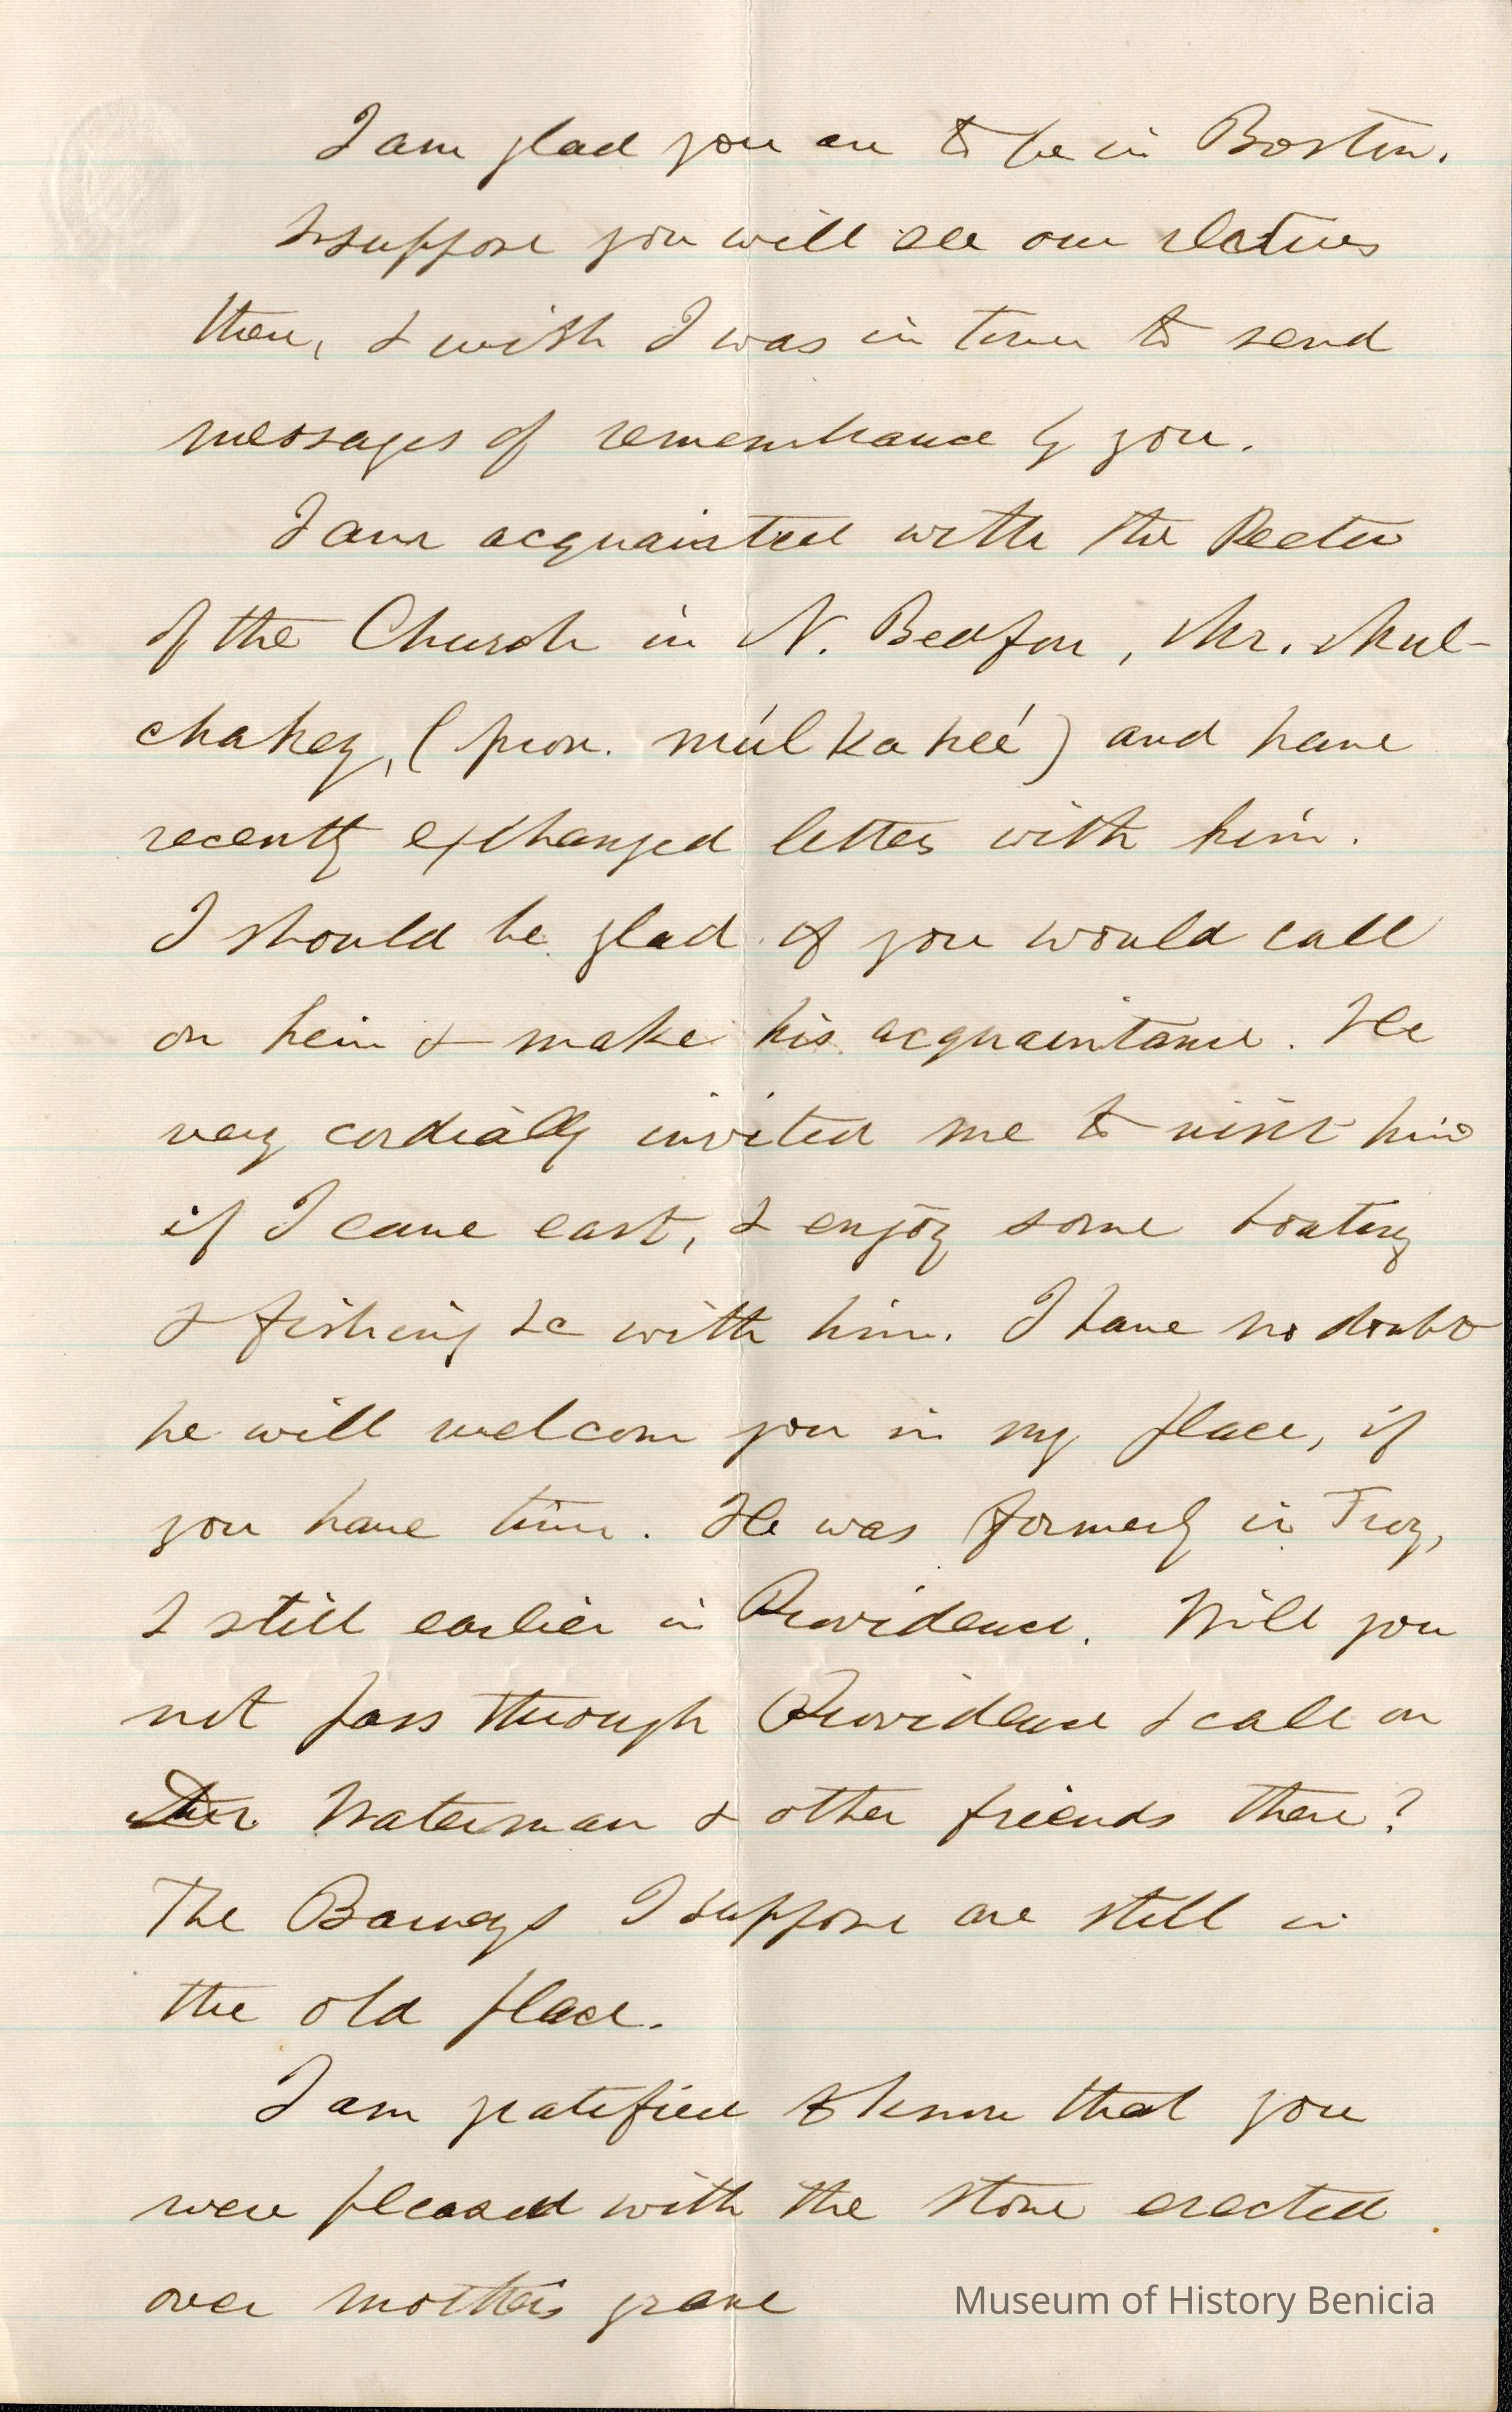 I am glad you are to be in Boston.
I suppose you will see our relatives
there, & wish I was in time to send
messages of remembrance by you.
I am acquainted with the Rector
of the Church in N. Bedford, Mr. Mul-
chahey, (pron. múl ka heé) and have
recently exchanged letters with him.
I should be glad if you would call
on him & make his acquaintance. He
very cordially invited me to visit him
if I came east, & enjoy some boating
& fishing &c with him. I have no doubt
he will welcome you in my place, if
you have time. He was formerly in Troy,
& still earlier in Providence. Will you
not pass through Providence & call on
Waterman & other friends there?
The I suppose are still in
the old place.
I am gratified to know that you
were pleased with the stone erected
over mother's grave
Museum of History Benicia